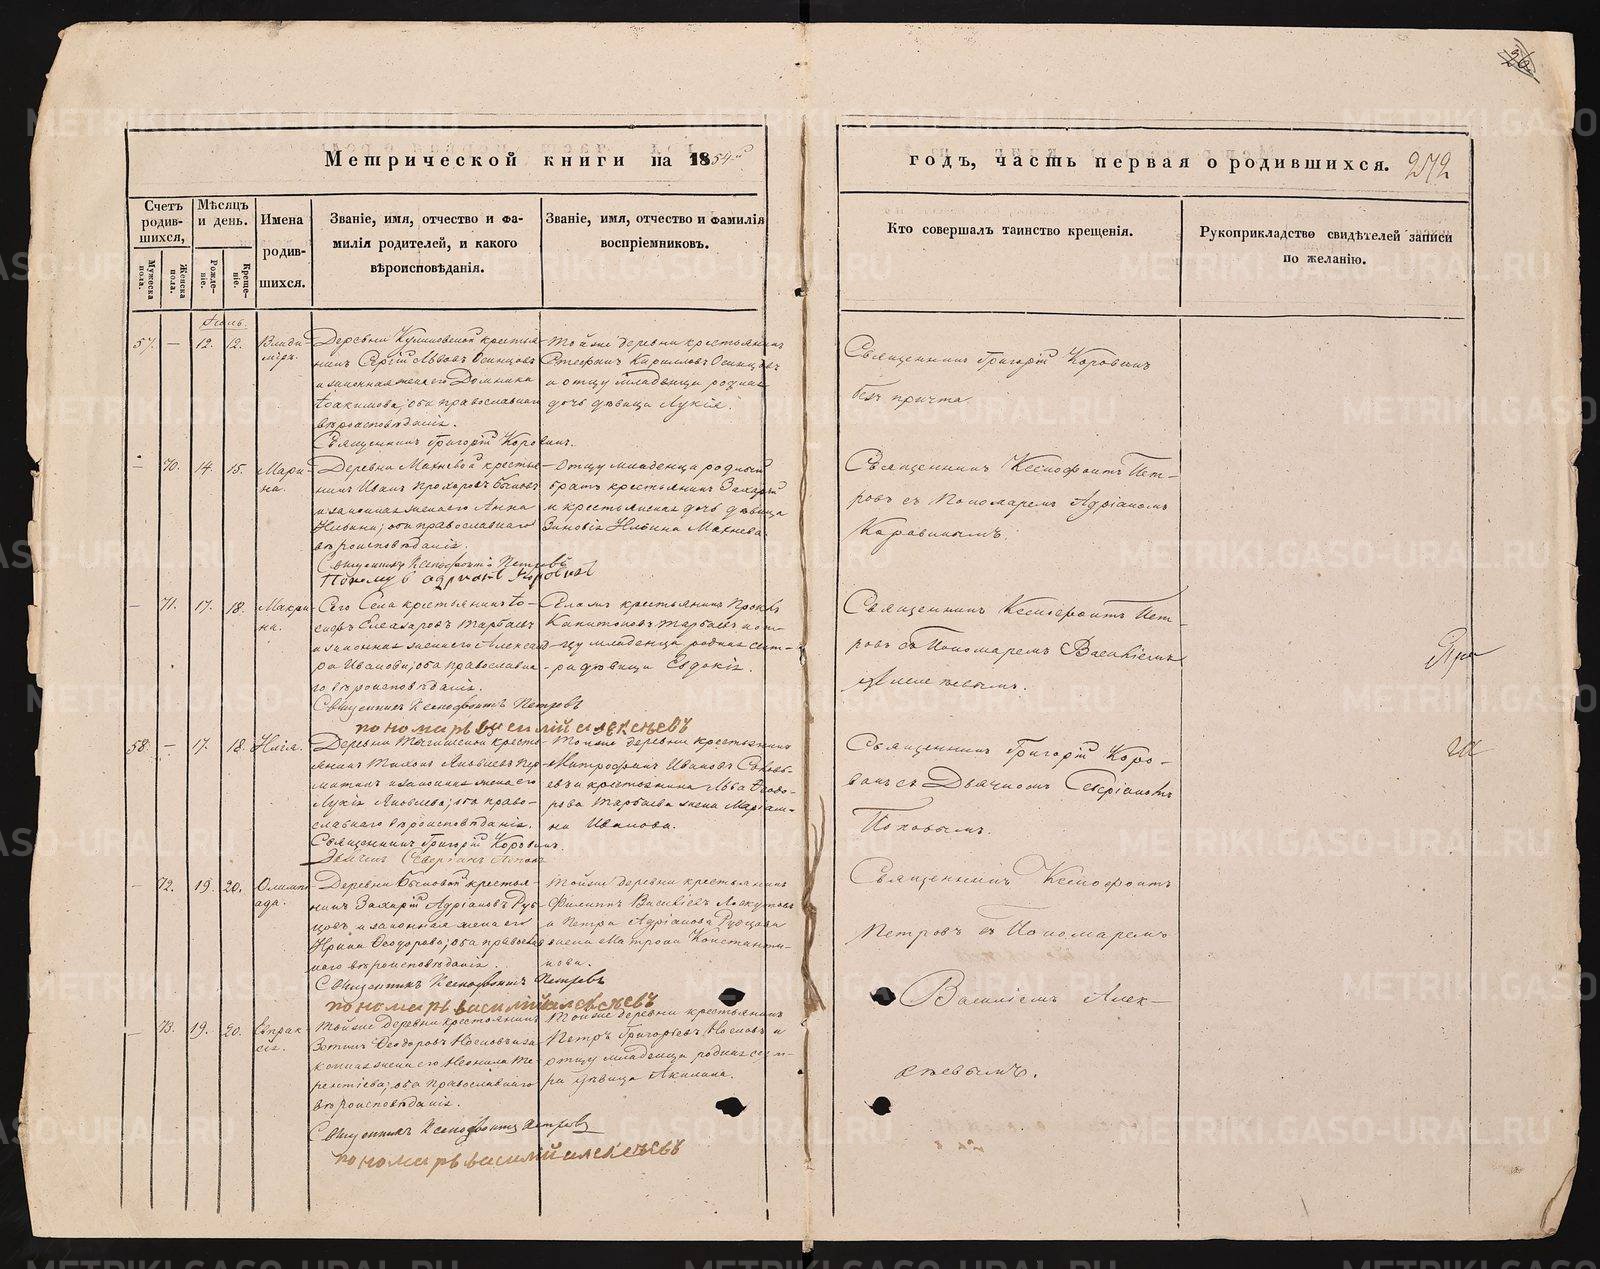 Метрической книги на 1854й
годъ, часть первая о родившихся. 272
Счетъ родив-шихся,
Мужеска пола.
Женска пола.
Мѣсяцъ и день.
Рожде-ніе.
Креще-ніе.
Имена родив-шихся.
Званіе, имя, отчество и фа-
милія родителей, и какого
вѣроисповѣданія.
Званіе, имя, отчество и фамилія
воспріемниковъ.
Кто совершалъ таинство крещенія.
Рукоприкладство свидѣтелей записи
по желанію.
Іюль.
57. — 12. 12. Влади-
міръ.
Деревни крестья-
нинъ Сергій Львовъ Осинцовъ
и законная жена его Домника
Іоакимова; оба православнаго
вѣроисповѣданія.
Священникъ Григорій Коровинъ.
Тойже деревни крестьянинъ
Стефанъ Кирилловъ Осинцовъ
и отцу младенца родная
дочь дѣвица Лукія.
Священникъ Григорій Коровинъ
безъ причта
— 70. 14. 15. Мари-
на.
Деревни Махневой крестья-
нинъ Иванъ Прохоровъ
и законная жена его Анна
Ильина; оба православнаго
вѣроисповѣданія.
Священникъ Ксенофонтъ Петровъ
Отцу младенца родный
братъ крестьянинъ Захарій
и крестьянская дочь дѣвица
Зиновія Ильина Махнева.
Священникъ Ксенофонтъ Пет-
ровъ съ Пономаремъ Адріаномъ
Коровинымъ.
— 71. 17. 18. Макри-
на.
Сего Села крестьянинъ Іо-
сифъ Елеазаровъ Тарбаевъ
и законная жена его Алексан-
ра Иванова; оба православна-
го вѣроисповѣданія.
Священникъ Ксенофонтъ Петровъ
пономарь василій алексѣевъ
крестьянинъ
Капитоновъ Тарбаевъ и от-
цу младенца родная сест-
ра дѣвица Евдокія.
Священникъ Ксенофонтъ Пет-
ровъ съ Пономаремъ Василіемъ
Алексѣевымъ.
58. — 17. 18. Илія.
Деревни крестья-
янинъ Тихонъ Яковлевъ
и законная жена его
Лукія Яковлева; оба право-
славнаго вѣроисповѣданія.
Священникъ Григорій Коровинъ.
Тойже деревни крестьянинъ
Митрофанъ Ивановъ
и крестьянина Льва Ѳеодо-
рова Тарбаева жена Маріам-
на Иванова.
Священникъ Григорій Коро-
винъ съ Дьячкомъ
Поповымъ.
— 72. 19. 20. Олимпі-
ада.
Деревни Быковой крестья-
нинъ Захарій Адріановъ Руб-
цовъ и законная жена его
Ирина Ѳеодорова; оба православ-
наго вѣроисповѣданія.
Священникъ Ксенофонтъ Петровъ
пономарь василій алексѣевъ
Тойже деревни крестьянинъ
Филиппъ Василіевъ Лоскутовъ
и Петра Адріанова Рубцова
жена Матрона Константи-
нова.
Священникъ Ксенофонтъ
Петровъ съ Пономаремъ
Василіемъ Алек-
сѣевымъ.
— 73. 19. 20. Евпрак-
сія.
Тойже деревни крестьянинъ
Зотикъ Ѳеодоровъ Носковъ и за-
конная жена его Неонила Те-
рентіева; оба православнаго
вѣроисповѣданія.
Священникъ Ксенофонтъ Петровъ
пономарь василій алексѣевъ
Тойже деревни крестьянинъ
Петръ Григорьевъ Носковъ и
отцу младенца родная сест-
ра дѣвица Акилина.
METRIKI.GASO-URAL.RU